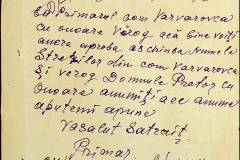 Eu Primarul com Varvarovca
cu onoare Vă rog acă bine voiți
a aproba aschinba numele
Strezilor din com Varvarovca
Și verog Domnule Pretor cu
onoare anumiți ace anume
aputemi apune
Vasalut Satrait.
Primar